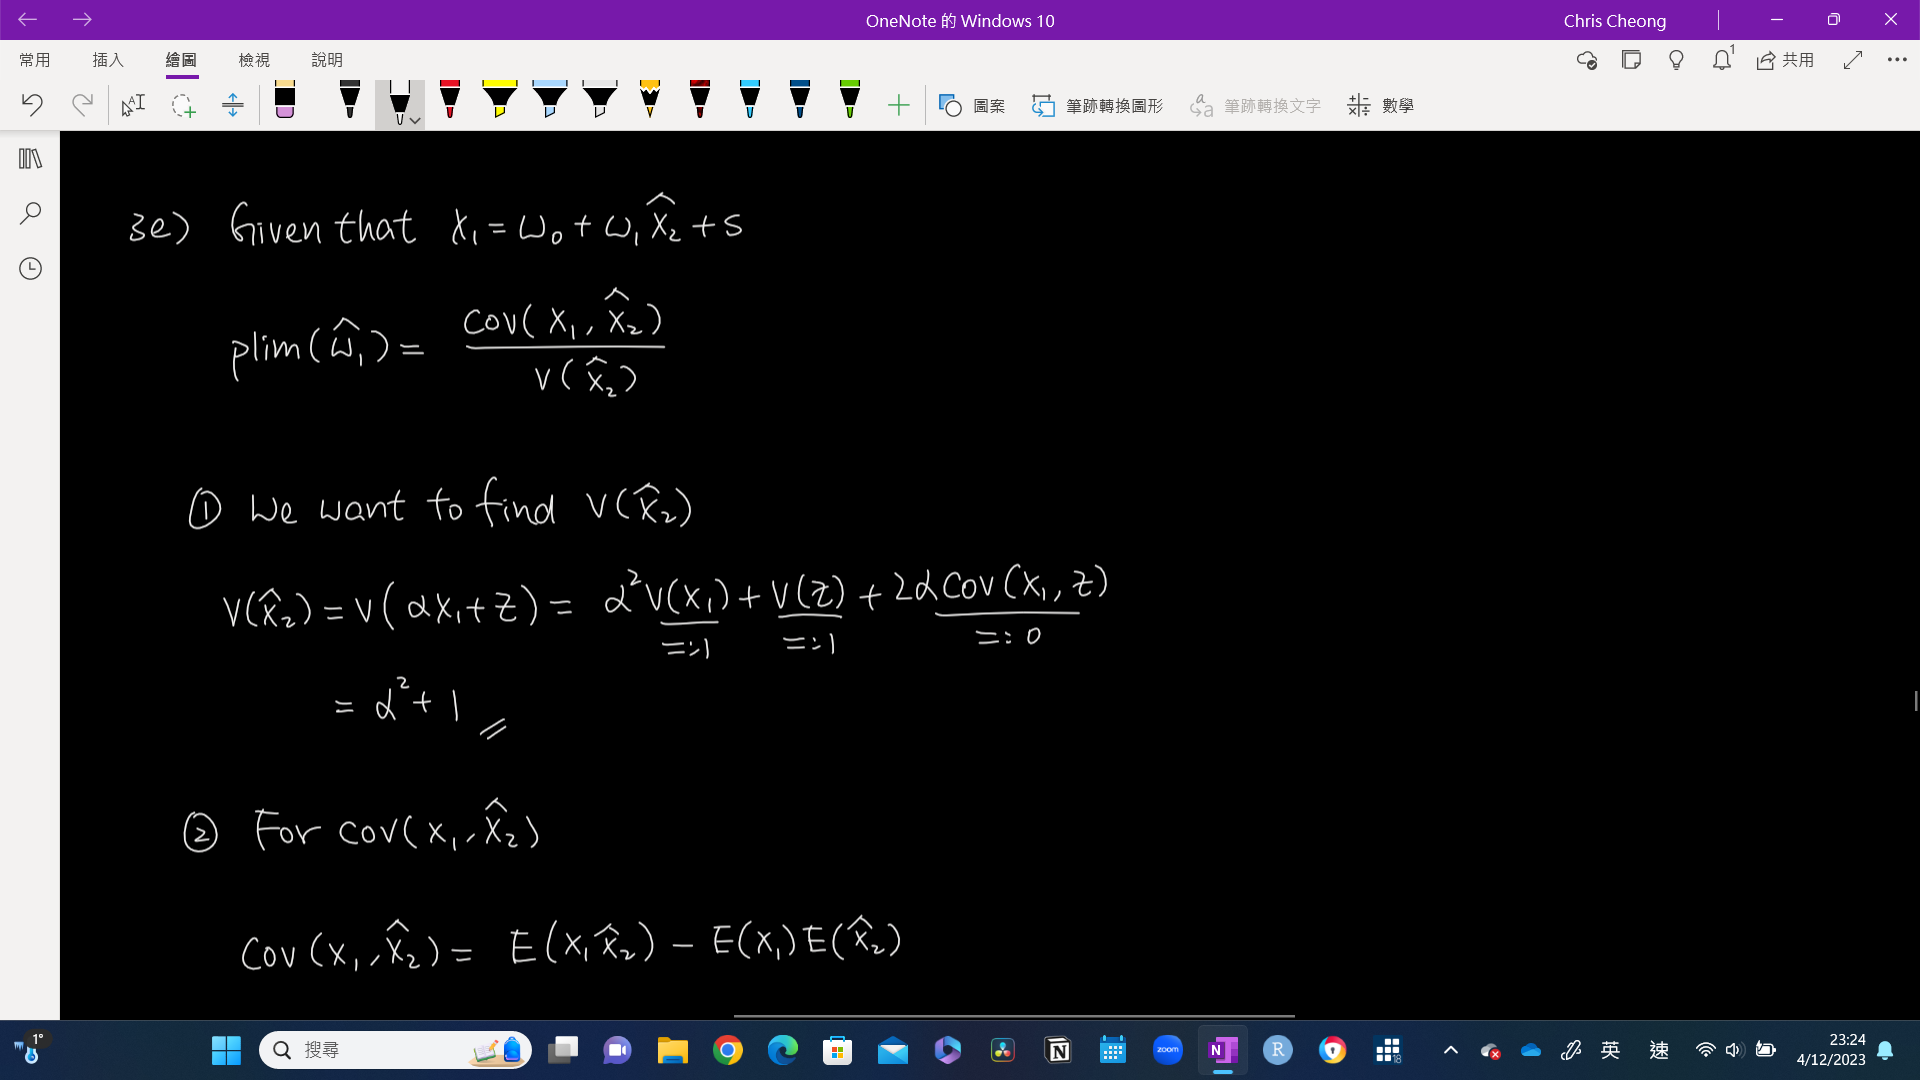 OneNote 的 Windows 10
Chris Cheong
常用 插入 繪圖 檢視 說明
1
共用
圖案 筆跡轉換圖形 筆跡轉換文字 數學
3e) Given that X₁ = ω₀ + ω₁X̂₂ + s
plim(ω̂₁) = Cov(X₁, X̂₂) / V(X̂₂)
① We want to find V(X̂₂)
V(X̂₂) = V(αX₁+Z) = α²V(X₁) + V(Z) + 2αCov(X₁, Z)
=:1 =:1 =:0
= α² + 1
② For Cov(X₁, X̂₂)
Cov(X₁, X̂₂) = E(X₁X̂₂) − E(X₁)E(X̂₂)
1°
搜尋
zoom
N
R
18
英
速
23:24
4/12/2023